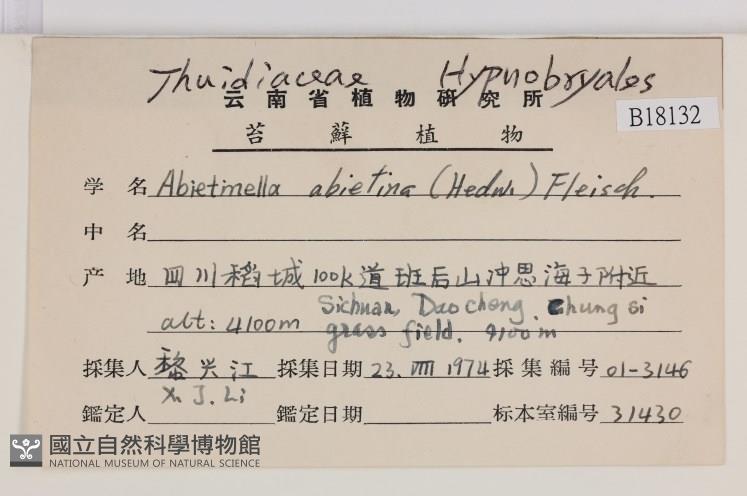 Thuidiaceae Hypnobryales
云南省植物研究所
B18132
苔蘚植物
学名 Abietinella abietina (Hedw.) Fleisch.
中名
产地 四川稻城100k道班后山冲思海子附近
alt: 4100m Sichuan, Daocheng. Chung si
grass field. 4100m
採集人 黎兴江 採集日期 23. VIII 1974 採集編号 01-3146
X. J. Li
鑑定人 鑑定日期 标本室編号 31430
國立自然科學博物館
NATIONAL MUSEUM OF NATURAL SCIENCE